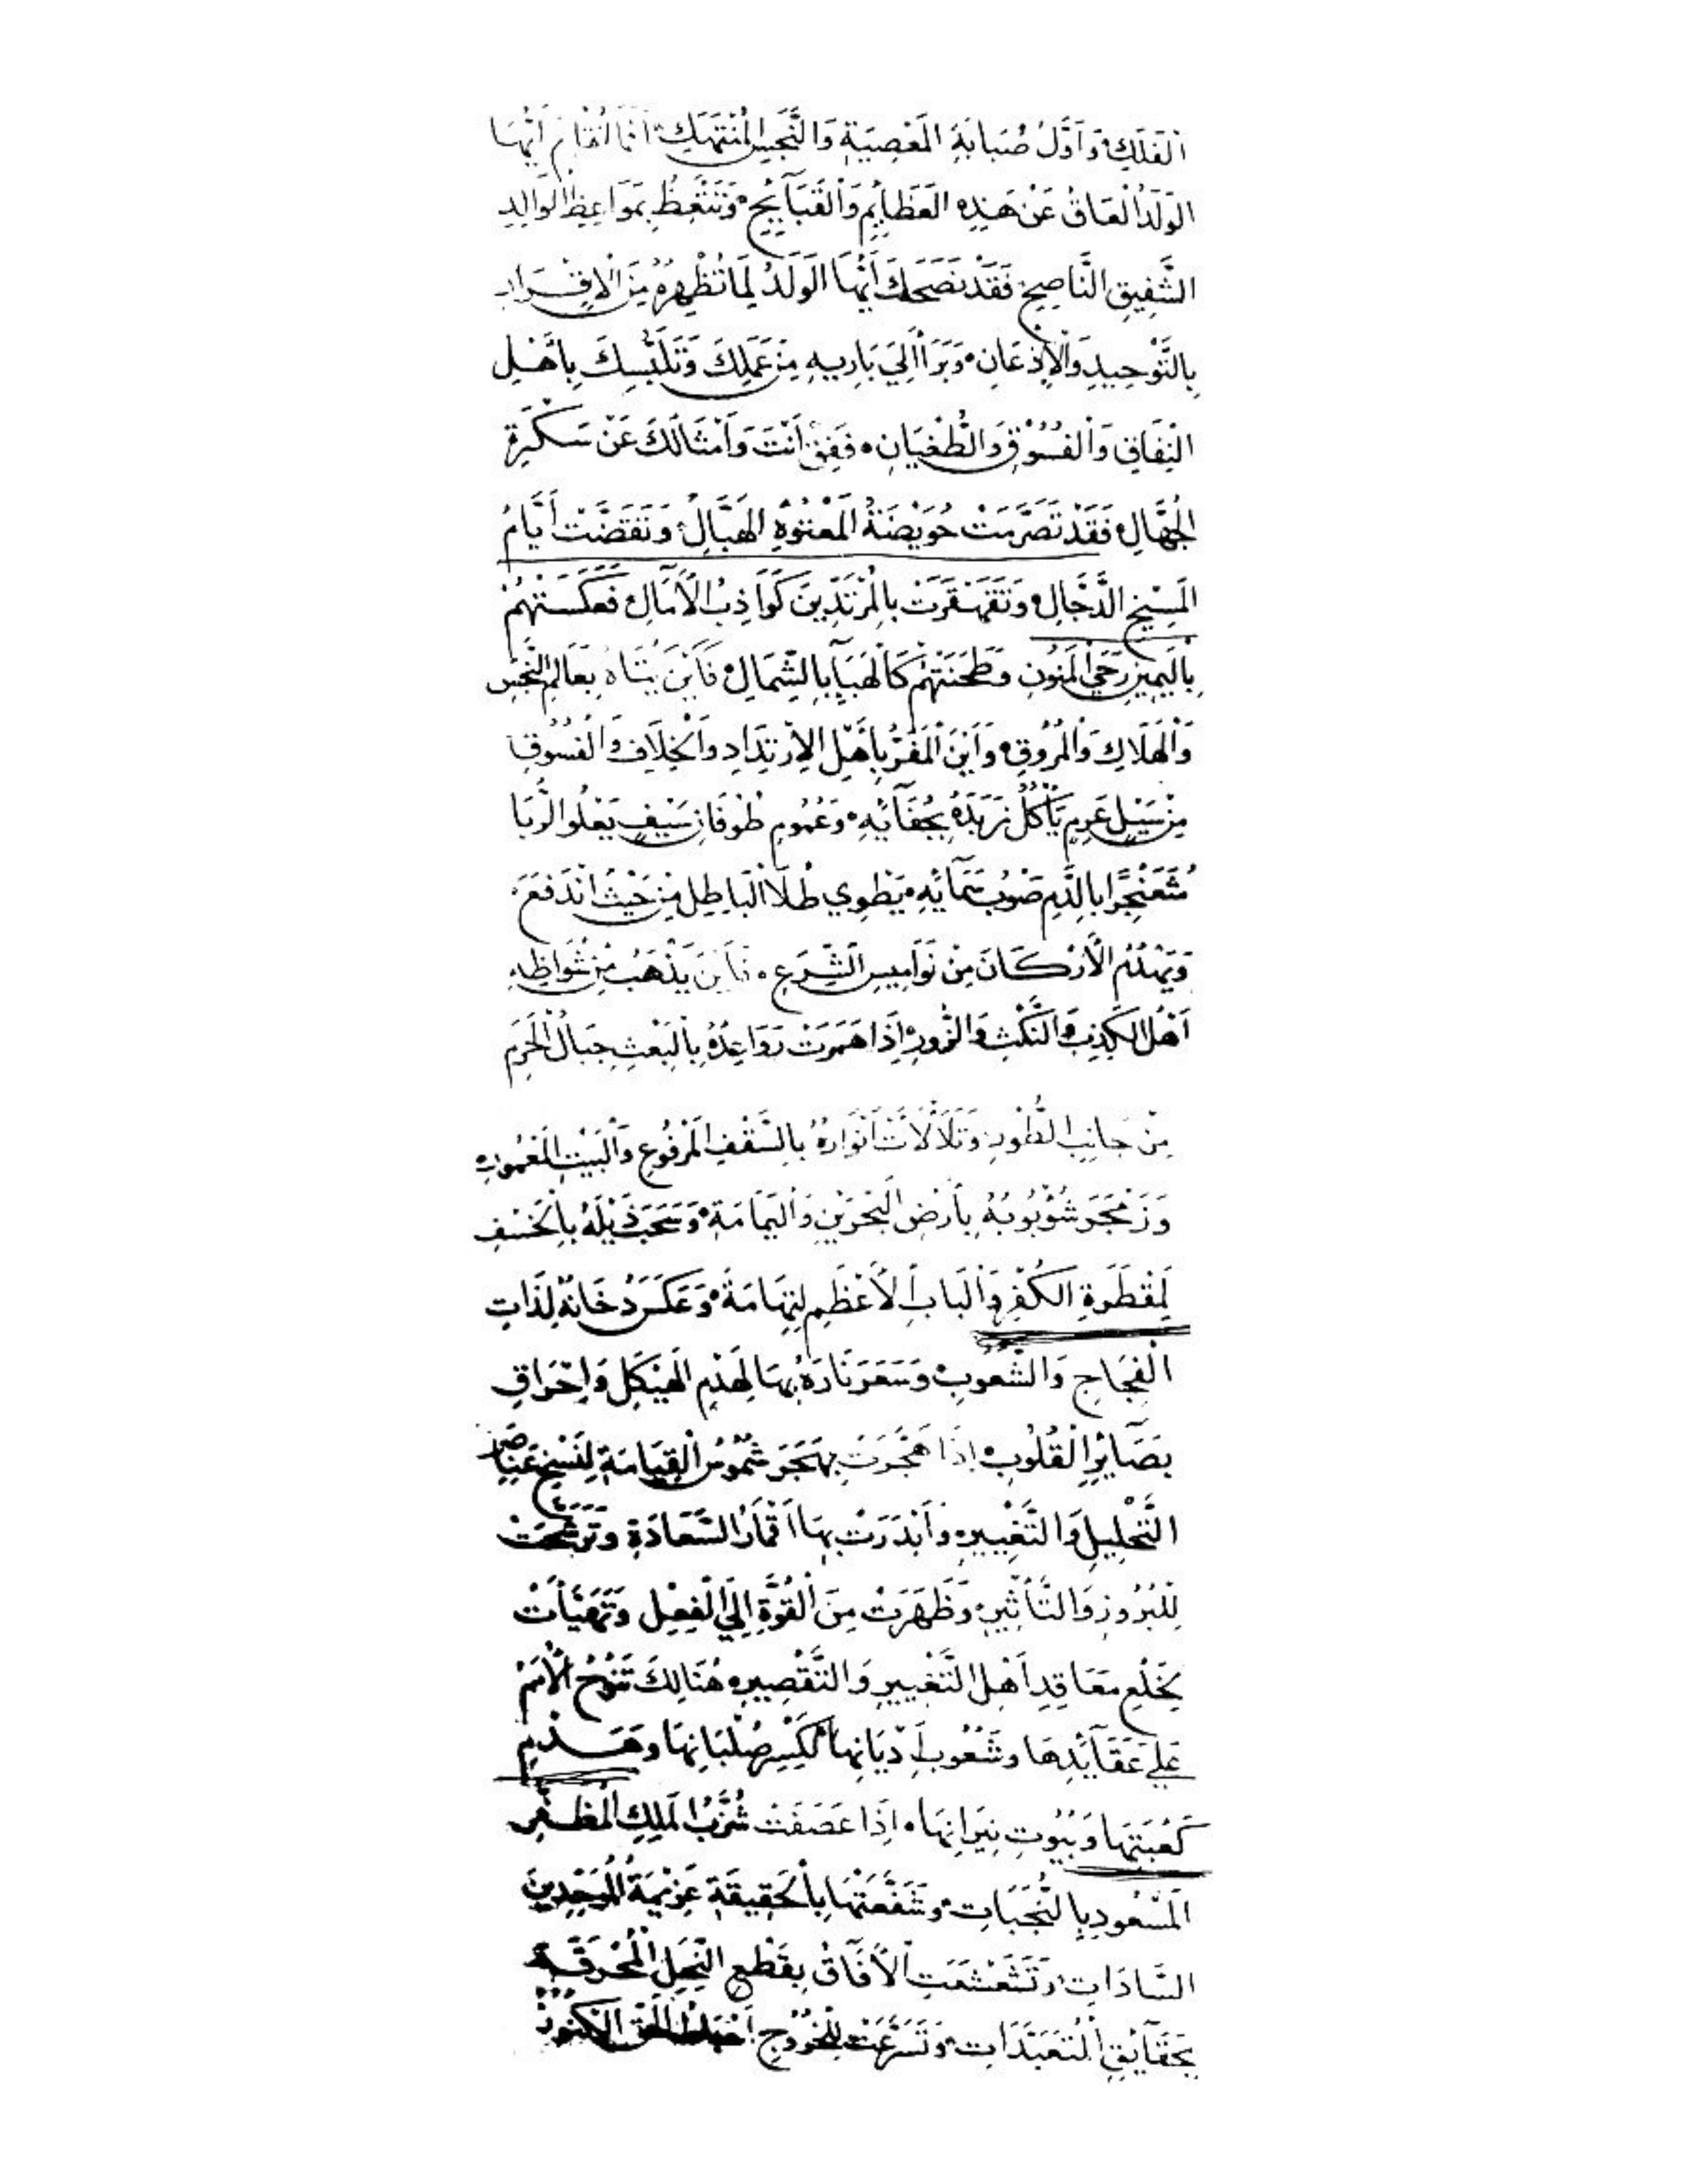 الفَلَكِ وَأَوَّلُ صُبَابَةِ المَعْصِيَةِ وَالنَّجَسِ المُنْتَهَكِ أَيُّهَا
الوَلَدُ العَاقُ عَنْ هَذِهِ العَظَايِمِ وَالْقَبَآيِحِ وَتَتَّعِظُ بِمَوَاعِظِ الوَالِدِ
الشَّفِيقِ النَّاصِحِ فَقَدْ نَصَحَكَ أَيُّهَا الوَلَدُ لِمَا تُظْهِرُهُ مِنَ الْإِقْرَارِ
بِالتَّوْحِيدِ وَالْإِذْعَانِ وَبَرَأَ إِلَىَ بَارِيهِ مِنْ عَمَلِكَ وَتَلَبُّسِكَ بِأَهْلِ
النِّفَاقِ وَالْفُسُوْقِ وَالطُّغْيَانِ فَفِقْ أَنْتَ وَأَمْثَالَكَ عَنْ سَكْرَةِ
الجُهَّالِ فَقَدْ تَصَرَّمَتْ حُوَيْضَنَةُ المَعْتُوْهِ الهَبَّالِ وَتَقَضَّتْ أَيَّامُ
المَسِيْخِ الدَّجَّالِ وَتَقَهْقَرَتْ بِالْمُرْتَدِّينَ كَوَاذِبُ الْأَمَالِ فَعَكَسَتْهُمْ
بِالْيَمِينِ رَحَىْ المَنُونِ وَطَحَنَتْهُمْ كَالْهَبَآءِ بِالشِّمَالِ فَأَيْنَ يُتَاهُ بِعَالَمِ النَّجَسِ
وَالْهَلَاكِ وَالْمُرُوقِ وَأَيْنَ الْمَفَرُّ بِأَهْلِ الإِرْتِدَادِ وَالخِلَافِ وَالفُسُوقِ
مِنْ سَيْلٍ عَرِمٍ يَأْكُلُ زَبَدَهُ بِجُفَآئِهِ وَعُمُومِ طُوفَانِ سَيْفٍ يَعْلُوا الرُّبَا
مُثْعَنْجِرًا بِالدَّمِ صَوْبُ سَمَآئِهِ يَطْوِي طُلَا الْبَاطِلِ مِنْ حَيْثُ انْدَفَعَ
وَيَهْدُمُ الْأَرْكَانَ مِنْ نَوَامِيسِ الشَّرَعِ فَأَيْنَ يَذْهَبُ مِنْ شُوَاظِهِ
أَهْلُ الكَذِبِ وَالنَّكْثِ وَالزُّورِ إِذَا هَمَرَتْ رَوَاعِدُهُ بِالْبَعْثِ جِبَالُ الْحَرَمِ
مِنْ جَانِبِ الطُّورِ وَتَلَأْلَأَتْ أَنْوَارُهُ بِالسَّقْفِ المَرْفُوعِ وَالْبَيْتِ المَعْمُورِ
وَزَمْجَرَ شُؤْبُوبُهُ بِأَرْضِ البَحْرَيْنِ وَالْيَمَامَةِ وَسَحَبَ ذَيْلَهُ بِالْخَسْفِ
لِمَقْطَرَةِ الكُفْرِ وَالْبَابِ الْأَعْظَمِ لِتِهَامَةَ وَعَكَسَ دُخَانَهُ لِذَاتِ
الْفِجَاجِ وَالشُّعُوبِ وَسَعَرَ نَارَهُ بِهَا لِهَدْمِ الهَيْكَلِ وَإِحْرَاقِ
بَصَآئِرِ الْقُلُوبِ إِذَا هَجَرَتْ بِهَجَرَ شُمُوسُ الْقِيَامَةِ لِنَسْخِ عَنَاصِرِ
التَّحْلِيلِ وَالتَّغْيِيرِ وَأَبْدَرَتْ بِهَا أَقْمَارُ السَّعَادَةِ وَتَرَشَّحَتْ
لِلْبُرُوزِ وَالتَّأْثِيرِ وَظَهَرَتْ مِنَ الْقُوَّةِ إِلَى الْفِعْلِ وَتَهَيَّأَتْ
بِخَلْعِ مَعَاقِدِ أَهْلِ التَّغْيِيرِ وَالتَّقْصِيرِ هُنَالِكَ تَنُوْحُ الْأُمَمُ
عَلَى عَقَآئِدِهَا وَشُعُوبِ أَدْيَانِهَا لِكَسْرِ صُلْبَانِهَا وَهَدْمِ
كَعْبَتِهَا وَبُيُوتِ نِيرَانِهَا إِذَا عَصَفَتْ شُزَّبُ المَلِكِ المُظَفَّرِ
المَسْعُودِ بِالنُّجَبَاتِ وَشَفَّعَتْهَا بِالْحَقِيقَةِ عَزِيْمَةُ المُوَحِّدِينَ
السَّادَاتِ وَتَشَعْشَعَتِ الْأَفَآقُ بِقَطْعِ النِّحَلِ الْمُحْرَقَةِ
بِحَقَآئِقِ الْمُتَعَبَّدَاتِ وَتَسَرَّعَتْ لِلْخُرُوجِ